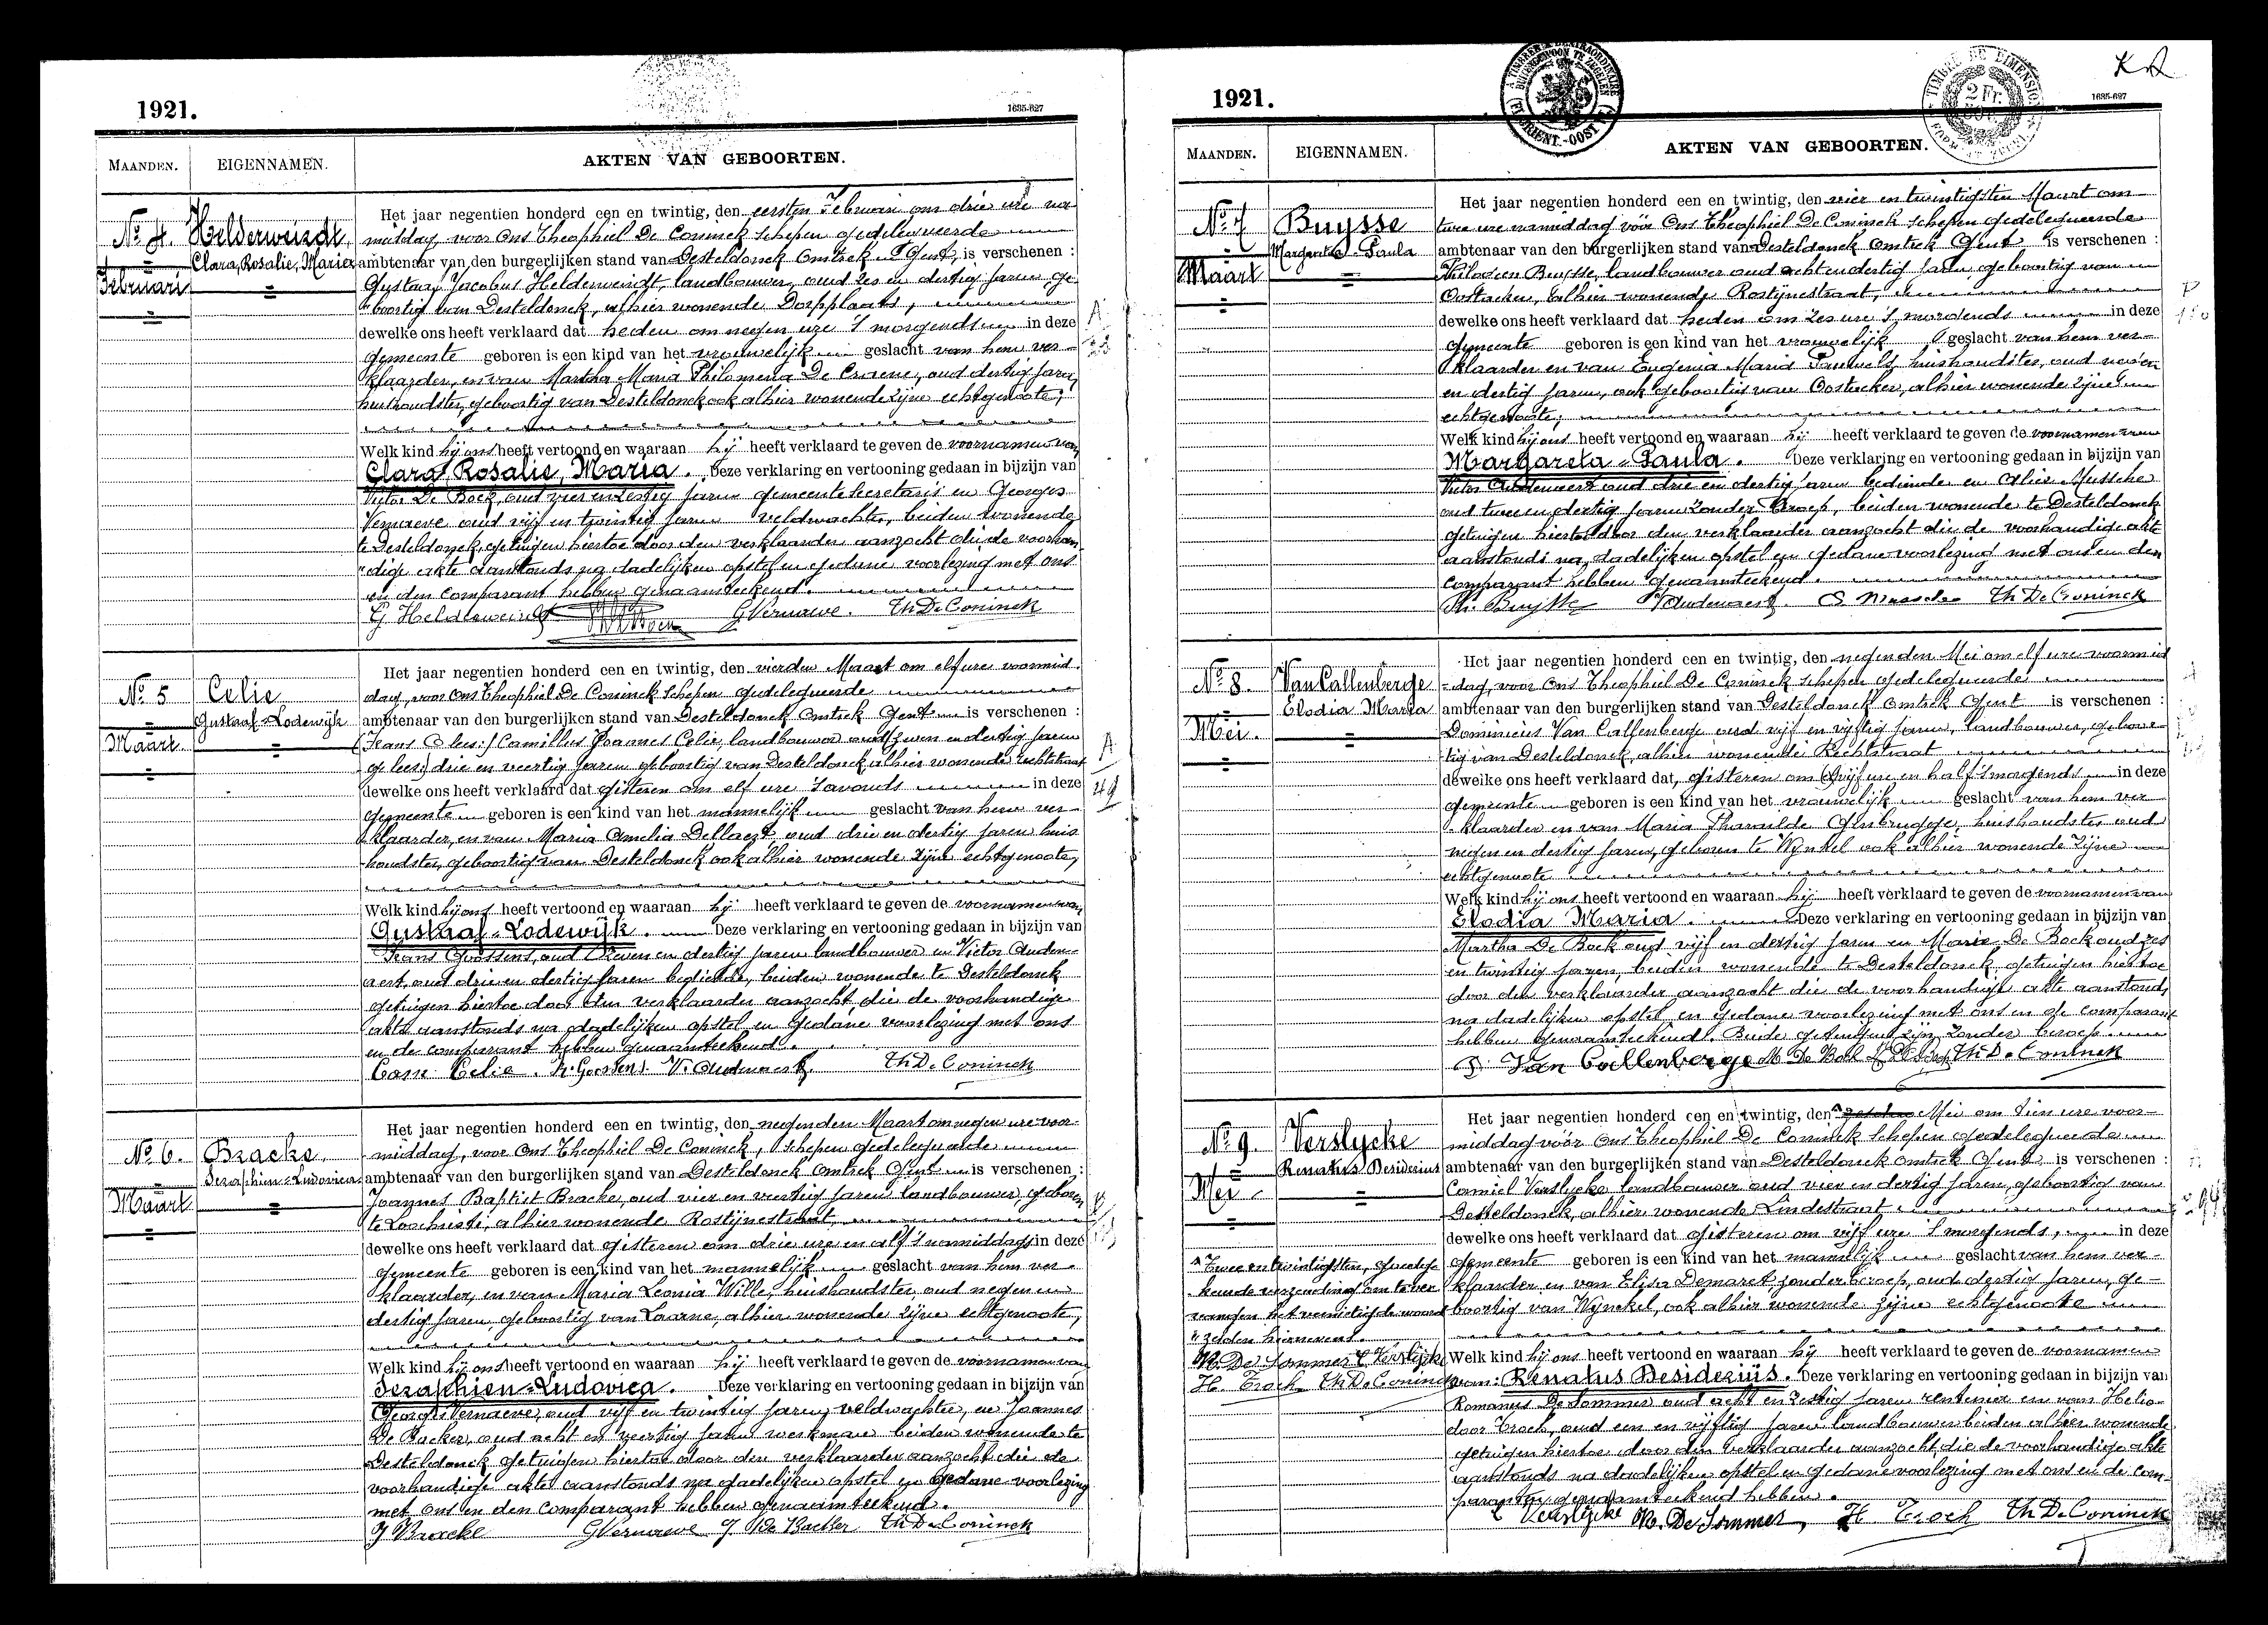 1921.
1635-627
MAANDEN.
EIGENNAMEN.
AKTEN VAN GEBOORTEN.
No. 4.
Februari
Helderweirdt
Clara, Rosalie, Maria
Het jaar negentien honderd een en twintig, den eersten Februari om drie ure na-
middag, voor Ons Theophiel De Coninck schepen gedelegueerde
ambtenaar van den burgerlijken stand van Desteldonck Omtrek Gent, is verschenen :
Gustaaf Jacobus Helderweirdt, landbouwer, oud zes en dertig jaren, ge-
boortig van Desteldonck, alhier wonende Dorpplaats,
dewelke ons heeft verklaard dat heden om negen ure 's morgends in deze
gemeente geboren is een kind van het vrouwelijk geslacht van hem ver-
klaarder, en van Martha Maria Philomena De Craene, oud dertig jaren,
huishoudster, geboortig van Desteldonck ook alhier wonende zijne echtgenoote,
Welk kind hij ons heeft vertoond en waaraan hij heeft verklaard te geven de voornamen van
Clara, Rosalie, Maria. Deze verklaring en vertooning gedaan in bijzijn van
Victor De Bock, oud vier en zestig jaren gemeente secretaris en Georges
Vernaeve oud vijf en twintig jaren veldwachter, beiden wonende
te Desteldonck, getuigen hiertoe door den verklaarder aanzocht die de voorhan-
dige akte aanstonds na dadelijken opstel en gedane voorlezing met ons
en den comparant hebben genaamteekend.
G. Helderweirdt G Vernaeve. Th De Coninck
No. 5
Maart
Celie
Gustaaf-Lodewijk
Het jaar negentien honderd een en twintig, den vierden Maart om elf ure voormid-
dag, voor Ons Theophiel De Coninck schepen gedelegueerde
ambtenaar van den burgerlijken stand van Desteldonck Omtrek Gent is verschenen :
Camillus Joannes Celie, landbouwer oud zeven en dertig jaren
drie en veertig jaren geboortig van Desteldonck alhier wonende
dewelke ons heeft verklaard dat gisteren om elf ure 's avonds in deze
gemeente geboren is een kind van het mannelijk geslacht van hem ver-
klaarder, en van Maria Amelia Dellaert, oud drie en dertig jaren huis-
houdster, geboortig van Desteldonck ook alhier wonende zijne echtgenoote,
Welk kind hij ons heeft vertoond en waaraan hij heeft verklaard te geven de voornamen van
Gustaaf-Lodewijk. Deze verklaring en vertooning gedaan in bijzijn van
Frans Goossens, oud zeven en dertig jaren landbouwer en Victor Auden-
aert, oud drie en dertig jaren bediende, beiden wonende te Desteldonck
getuigen hiertoe door den verklaarder aanzocht die de voorhandige
akte aanstonds na dadelijken opstel en gedane voorlezing met ons
en de comparant hebben genaamteekend.
Cam Celie. Fr. Goossens V. Audenaert. Th De Coninck
No. 6.
Maart
Bracke.
Serafhien-Ludovica
Het jaar negentien honderd een en twintig, den negenden Maart om negen ure voor-
middag, voor Ons Theophiel De Coninck, schepen gedelegueerde
ambtenaar van den burgerlijken stand van Desteldonck Omtrek Gent is verschenen :
Joannes Baptist Bracke, oud vier en veertig jaren landbouwer, geboren
te Loochristi, alhier wonende Rostijnestraat,
dewelke ons heeft verklaard dat gisteren om drie ure en alf 's namiddags in deze
gemeente geboren is een kind van het mannelijk geslacht van hem ver-
klaarder, en van Maria Leonia Wille, huishoudster, oud negen en
dertig jaren, geboortig van Laarne, alhier wonende zijne echtgenoote,
Welk kind hij ons heeft vertoond en waaraan hij heeft verklaard te geven de voornamen van
Serafhien-Ludovica. Deze verklaring en vertooning gedaan in bijzijn van
Georges Vernaeve, oud vijf en twintig jaren, veldwachter, en Joannes
De Backer, oud acht en veertig jaren werkman beiden wonende te
Desteldonck getuigen hiertoe door den verklaarder aanzocht die de
voorhandige akte aanstonds na dadelijken opstel en gedane voorlezing
met ons en den comparant hebben genaamteekend.
J Bracke G Vernaeve J De Backer Th De Coninck
1921.
1635-627
MAANDEN.
EIGENNAMEN.
AKTEN VAN GEBOORTEN.
No. 7
Maart
Buysse
Margareta-Paula
Het jaar negentien honderd een en twintig, den vier en twintigsten Maart om
twee ure namiddag vóór Ons Theophiel De Coninck schepen gedelegueerde
ambtenaar van den burgerlijken stand van Desteldonck Omtrek Gent is verschenen :
Buysse, landbouwer oud acht en dertig jaren, geboortig van
Oostacker, alhier wonende Rostijnestraat,
dewelke ons heeft verklaard dat heden om zes ure 's morgends in deze
gemeente geboren is een kind van het vrouwelijk geslacht van hem ver-
klaarder en van Eugenia Maria Pauwels, huishoudster, oud
en dertig jaren, ook geboortig van Oostacker, alhier wonende zijne
echtgenoote,
Welk kind hij ons heeft vertoond en waaraan hij heeft verklaard te geven de voornamen van
Margareta-Paula. Deze verklaring en vertooning gedaan in bijzijn van
Victor Audenaert oud drie en dertig jaren bediende en Musschе
oud twee en dertig jaren zonder beroep, beiden wonende te Desteldonck
getuigen hiertoe door den verklaarder aanzocht die de voorhandige akte
aanstonds na dadelijken opstel en gedane voorlezing met ons en den
comparant hebben genaamteekend.
Ph. Buysse V Audenaert. Th De Coninck
No. 8.
Mei.
Van Callenberge
Elodia Maria
Het jaar negentien honderd een en twintig, den negenden Mei om elf ure voormid-
dag, voor Ons Theophiel De Coninck schepen gedelegueerde
ambtenaar van den burgerlijken stand van Desteldonck Omtrek Gent is verschenen :
Dominicus Van Callenberge oud vijf en vijftig jaren, landbouwer, geboor-
tig van Desteldonck, alhier wonende Rechtstraat
dewelke ons heeft verklaard dat, gisteren om vijf ure en half 's morgends in deze
gemeente geboren is een kind van het vrouwelijk geslacht van hem ver-
klaarder en van Maria Pharaïlde Ghsbrugge, huishoudster oud
negen en dertig jaren, geboren te Wynkel ook alhier wonende zijne
echtgenoote
Welk kind hij ons heeft vertoond en waaraan hij heeft verklaard te geven de voornamen van
Elodia Maria. Deze verklaring en vertooning gedaan in bijzijn van
Martha De Bock oud vijf en dertig jaren en Marie De Bock oud zes
en twintig jaren, beiden wonende te Desteldonck, getuigen hiertoe
door den verklaarder aanzocht die de voorhandige akte aanstonds
na dadelijken opstel en gedane voorlezing met ons en de comparant
hebben genaamteekend. Beide getuigen zijn zonder beroep.
D. Van Callenberge M De Bock Th De Coninck
No. 9.
Mei
Verslycke
Renatus Desiderius
Twee en twintigsten, goedge-
keurde verzending om te ver-
vangen het vernietigde woord
"zesden hiernevens.
R. De Sommer C Verslycke
H. Troch Th De Coninck
Het jaar negentien honderd een en twintig, den Mei om tien ure voor-
middag vóór Ons Theophiel De Coninck schepen gedelegueerde
ambtenaar van den burgerlijken stand van Desteldonck Omtrek Gent is verschenen :
Camiel Verslycke landbouwer oud vier en dertig jaren, geboortig van
Desteldonck, alhier wonende Lindestraat
dewelke ons heeft verklaard dat gisteren om vijf ure 's morgends, in deze
gemeente geboren is een kind van het mannelijk geslacht van hem ver-
klaarder en van Elisa Demaret zonder beroep, oud dertig jaren, ge-
boortig van Wynckel, ook alhier wonende zijne echtgenoote
Welk kind hij ons heeft vertoond en waaraan hij heeft verklaard te geven de voornamen
van: Renatus Desideriüs. Deze verklaring en vertooning gedaan in bijzijn van
Romanus De Sommer oud acht en zestig jaren rentenier en van Helio-
door Troch, oud een en vijftig jaren landbouwer beiden alhier wonende
getuigen hiertoe door den verklaarder aanzocht die de voorhandige akte
aanstonds na dadelijken opstel en gedane voorlezing met ons en de com-
paranten genaamteekend hebben.
C Verslycke R. De Sommer, H Troch Th De Coninck